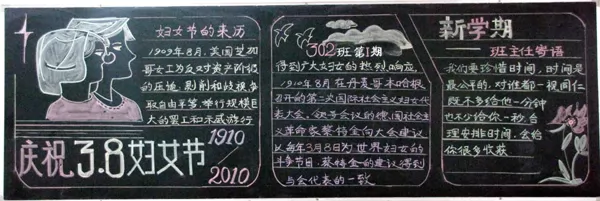 妇女节的来历
1909年8月,美国芝加
哥女工为反对资产阶级
的压迫,剥削和歧视,争
取自由平等,举行规模巨
大的罢工和示威游行
1910
2010
庆祝3.8妇女节
302班第1期
得到广大妇女的热烈响应,
1910年8月在丹麦哥本哈根
召开的第二次国际社会主义妇女代
表大会,领导会议的德国社会主
义革命家蔡特金向大会建议
以每年3月8日为世界妇女的
斗争节日,蔡特金的建议得到
与会代表的一致
新学期
班主任寄语
我们要珍惜时间,时间是
最公平的,对谁都一视同仁
既不多给他一分钟
也不少给你一秒,合
理安排时间,会给
你很多收获